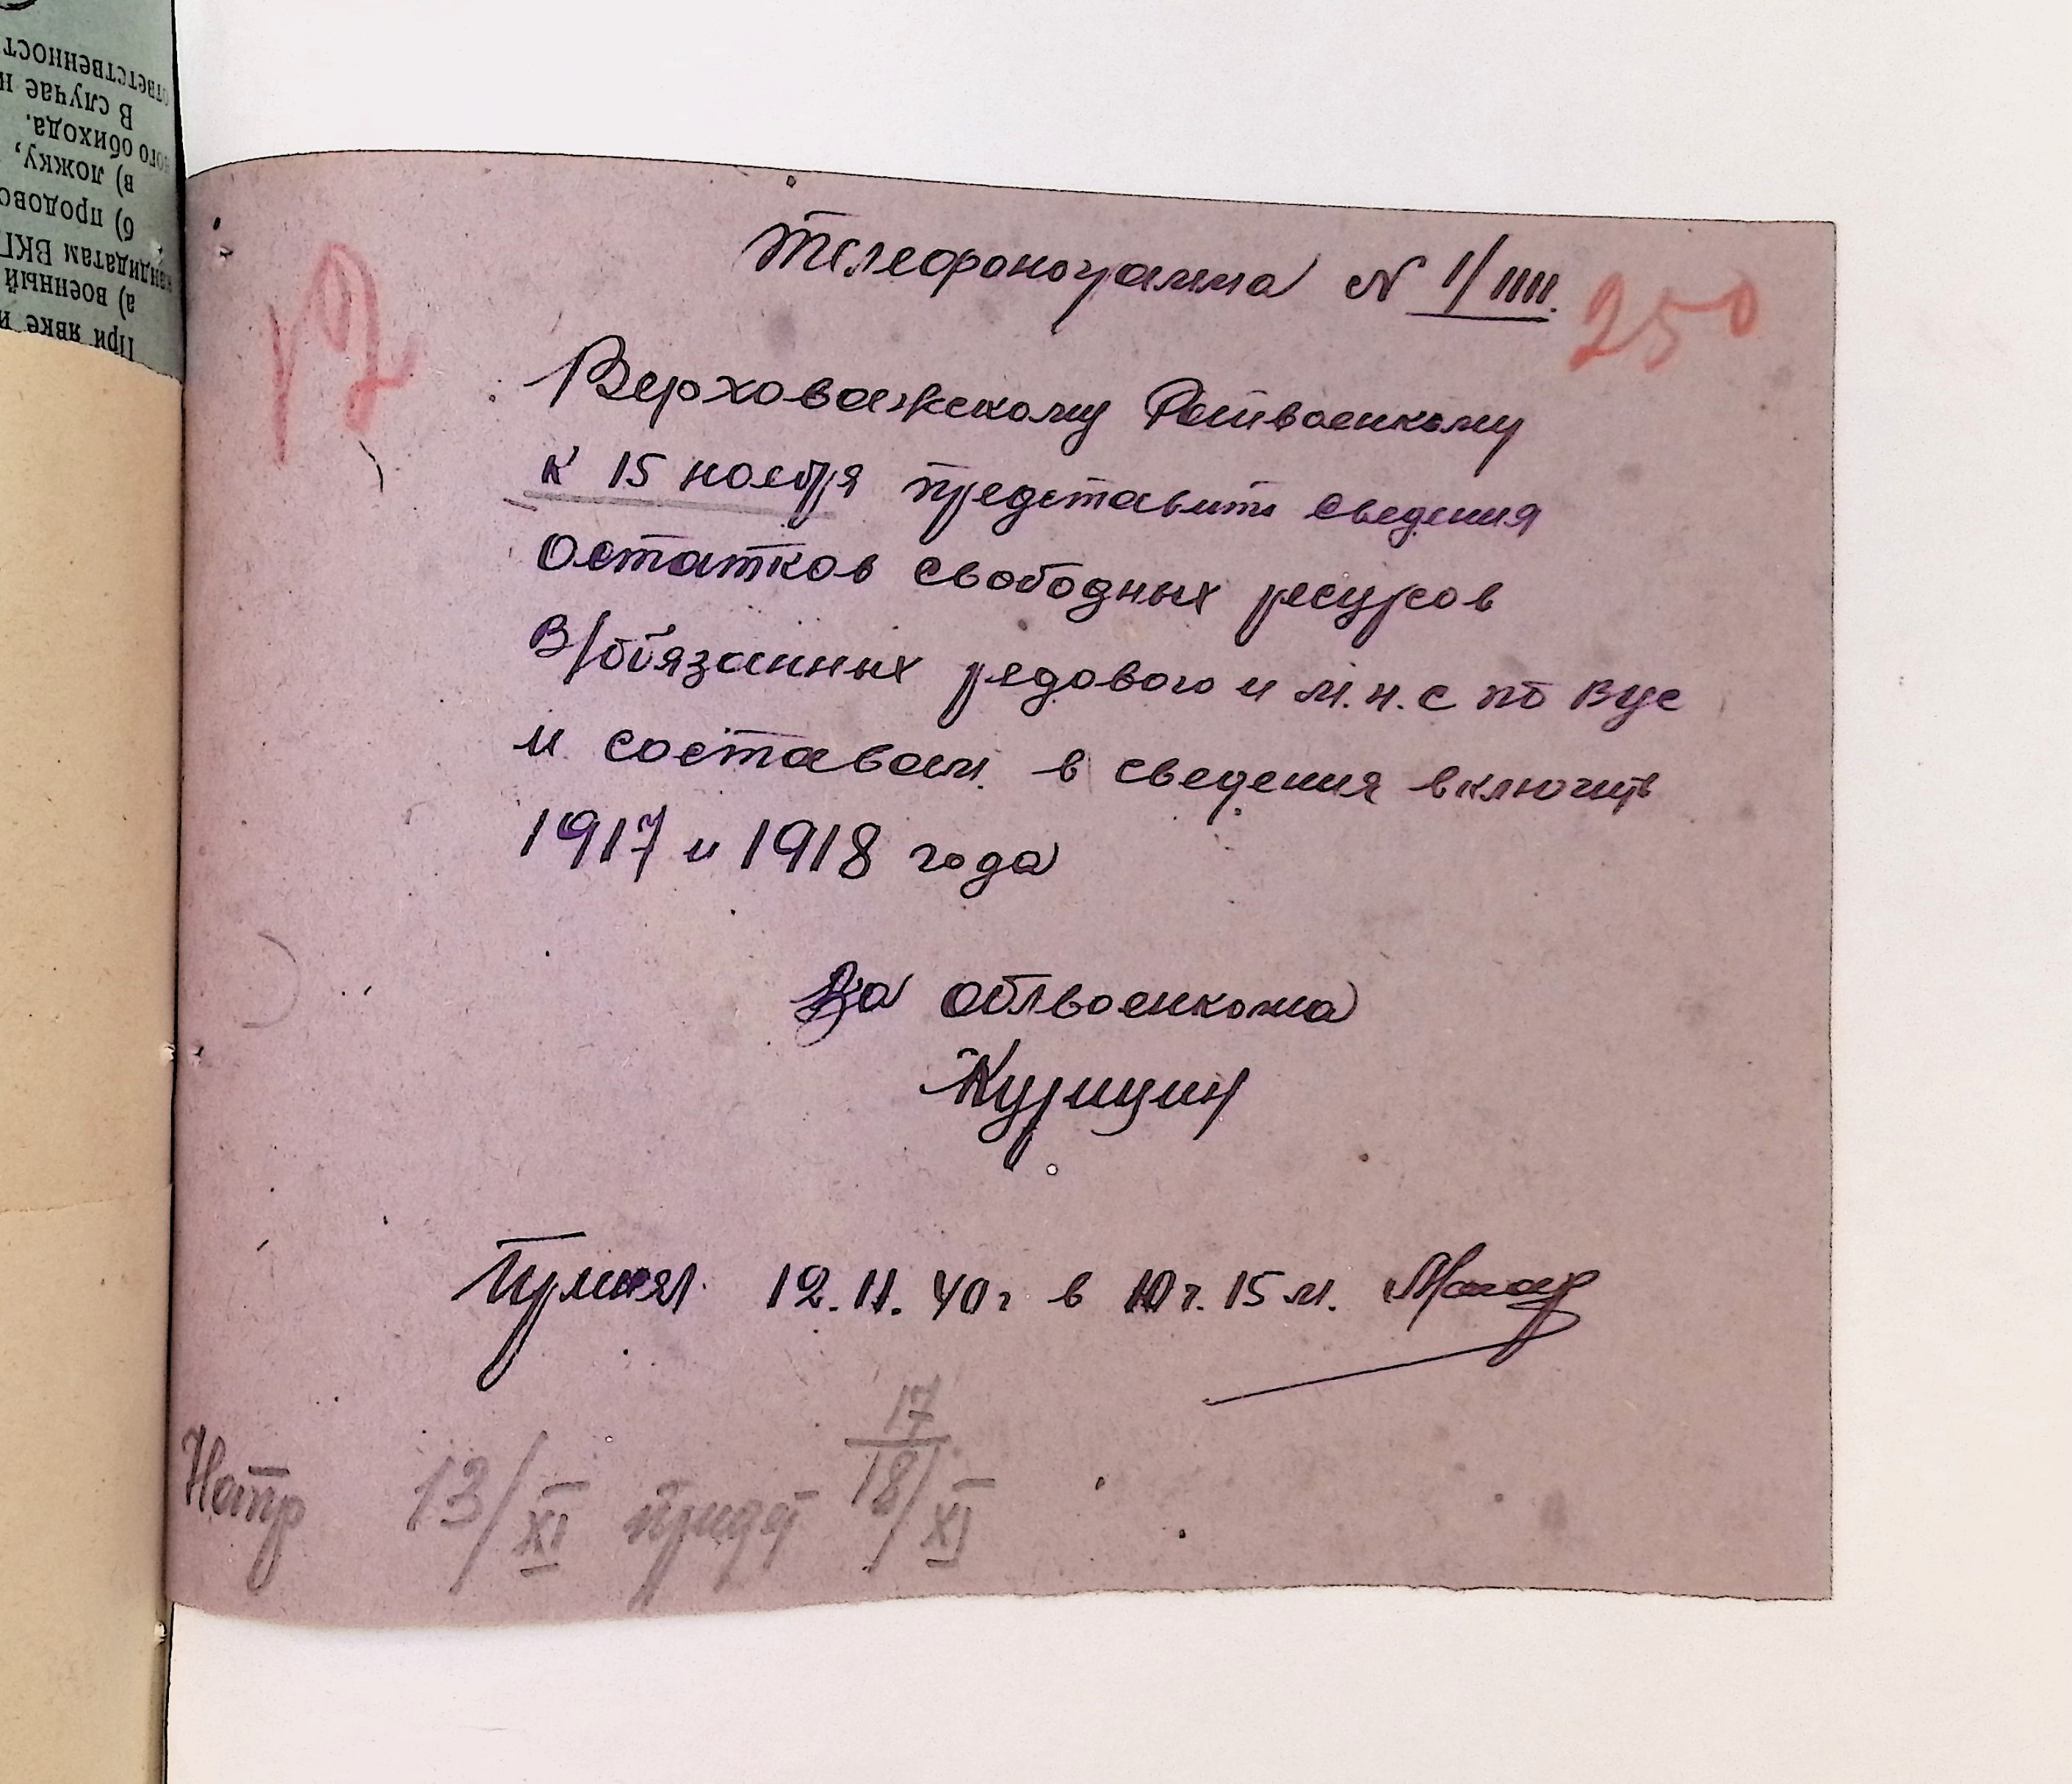 ответственност
В случае н
ного обихода.
в) ложку,
б) продово
кандидатам ВКП
а) военный
При явке и
Телефонограмма N 1/1111.
250
12
Верховажскому Райвоенкому
к 15 ноября представить сведения
Остатков свободных ресурсов
В/обязанных рядового и м.н.с по вус
и составам. в сведения включить
1917 и 1918 года
За облвоенкома
Курицин
Принял. 12.11.40г в 10 ч. 15 м.
13/XI придёт 17/18/XI